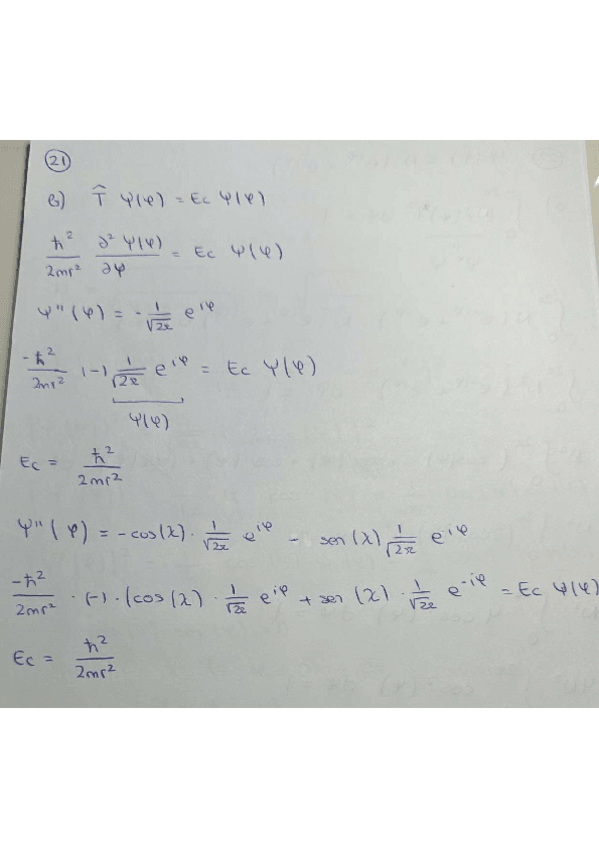 21
b) T̂ Ψ(φ) = Ec Ψ(φ)
ħ²/2mr² ∂²Ψ(φ)/∂φ = Ec Ψ(φ)
Ψ''(φ) = - 1/√2π e^iφ
-ħ²/2mr² (-) 1/√2π e^iφ = Ec Ψ(φ)
Ψ(φ)
Ec = ħ²/2mr²
Ψ''(φ) = -cos(λ) · 1/√2π e^iφ - sen(λ) 1/√2π e^iφ
-ħ²/2mr² · (-) · (cos(λ) · 1/√2π e^iφ + sen(λ) · 1/√2π e^-iφ = Ec Ψ(φ)
Ec = ħ²/2mr²